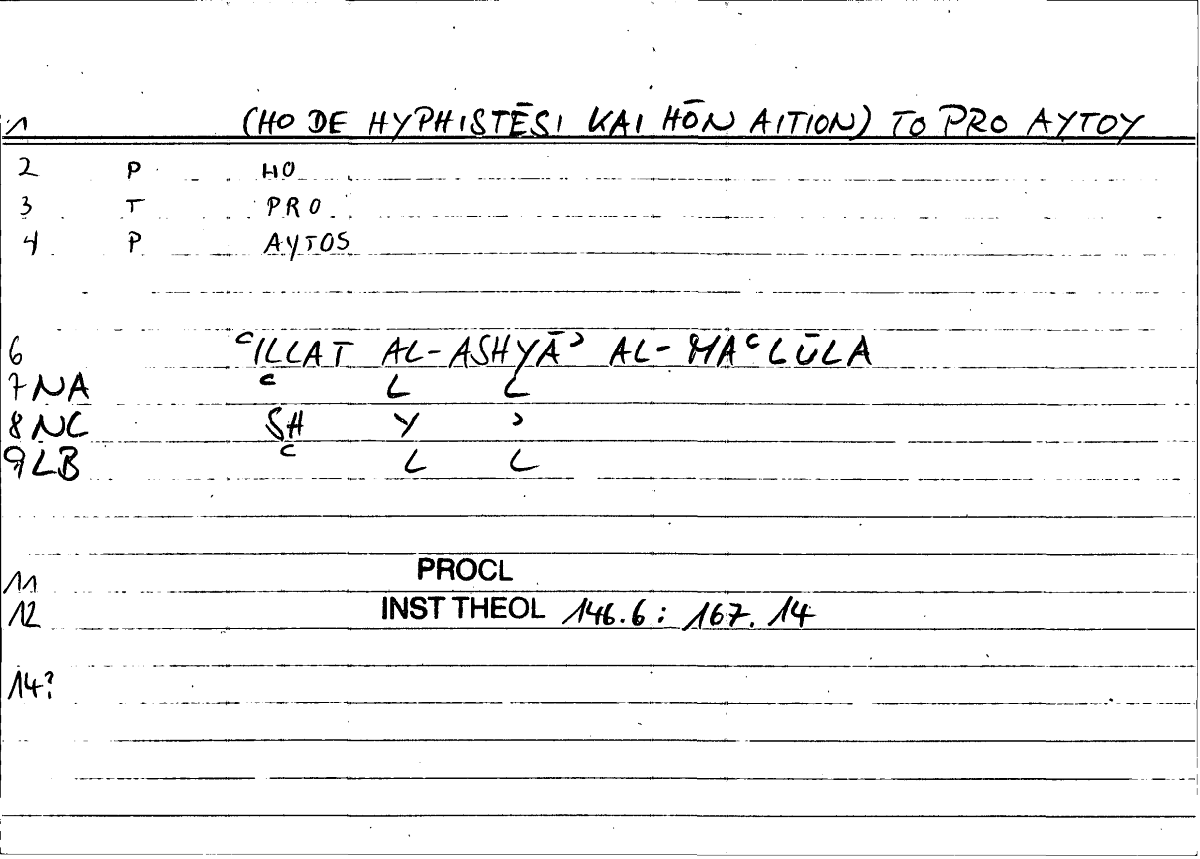 1 (HO DE HYPHISTĒSI KAI HŌN AITION) TO PRO AYTOY
2 P HO
3 T PRO
4 P AYTOS
6 ʿILLAT AL-ASHYĀʾ AL-MAʿLŪLA
7 NA ʿ L L
8 NC SH Y ʾ
9 LB ʿ L L
11 PROCL
12 INST THEOL 146.6: 167.14
14?